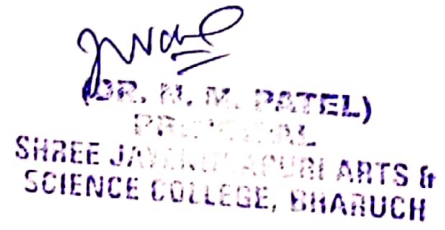 (DR. N. M. PATEL)
PRINCIPAL
SHREE ARTS &
SCIENCE COLLEGE, BHARUCH